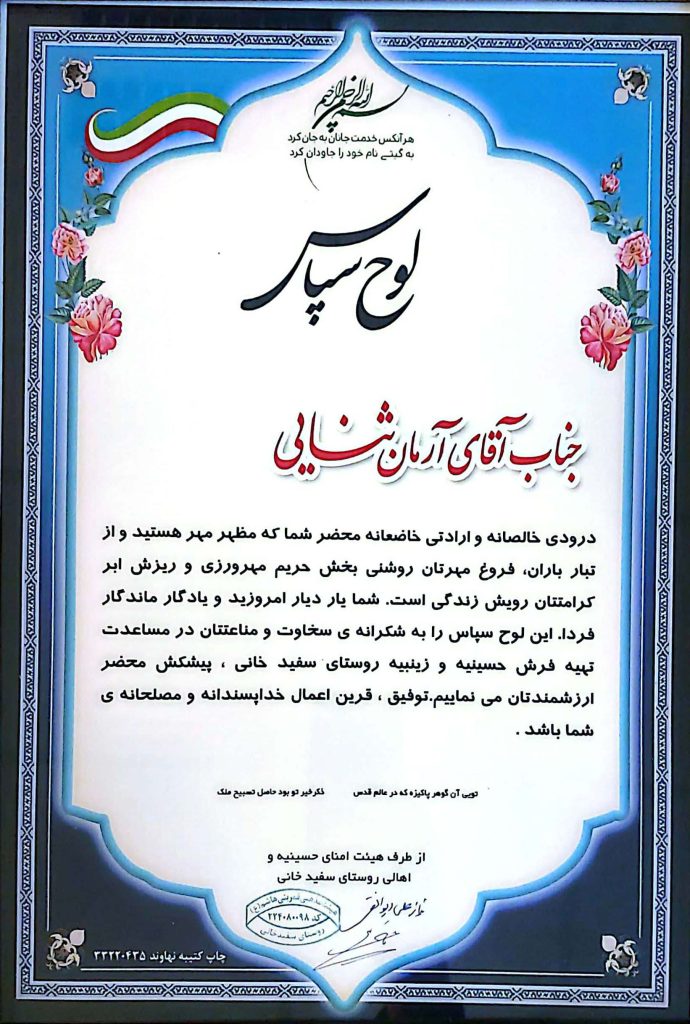 بسم الله الرحمن الرحیم
هر آنکس خدمت جانان به جان کرد
به گیتی نام خود را جاودان کرد
لوح سپاس
جناب آقای آرمان ثنایی
درودی خالصانه و ارادتی خاضعانه محضر شما که مظهر مهر هستید و از
تبار باران، فروغ مهرتان روشنی بخش حریم مهرورزی و ریزش ابر
کرامتتان رویش زندگی است. شما یار دیار امروزید و یادگار ماندگار
فردا. این لوح سپاس را به شکرانه ی سخاوت و مناعتتان در مساعدت
تهیه فرش حسینیه و زینبیه روستای سفید خانی ، پیشکش محضر
ارزشمندتان می نماییم.توفیق ، قرین اعمال خداپسندانه و مصلحانه ی
شما باشد .
تویی آن گوهر پاکیزه که در عالم قدس ذکر خیر تو بود حاصل تسبیح ملک
از طرف هیئت امنای حسینیه و
اهالی روستای سفید خانی
کد ۲۲۴۰۸۰۰۹۸
روستای سفیدخانی
چاپ کتیبه نهاوند ۳۳۲۲۰۴۳۵